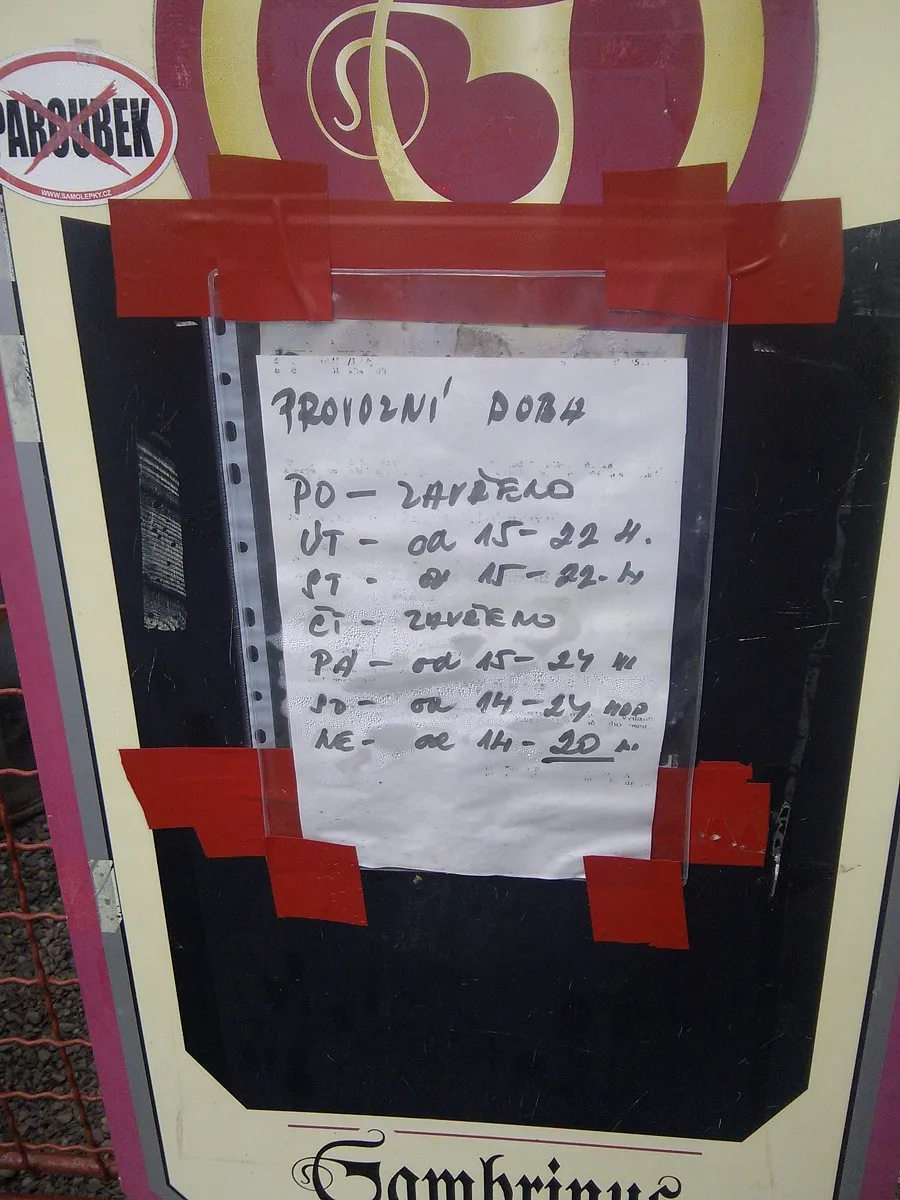 PAROUBEK
WWW.SAMOLEPKY.CZ
PROVOZNÍ DOBA
PO - ZAVŘENO
ÚT - od 15-22 H.
ST - od 15-22. H
ČT - ZAVŘENO
PÁ - od 15-24 H
SO - od 14-24 HOD
NE - od 14-20 H.
Gambrinus